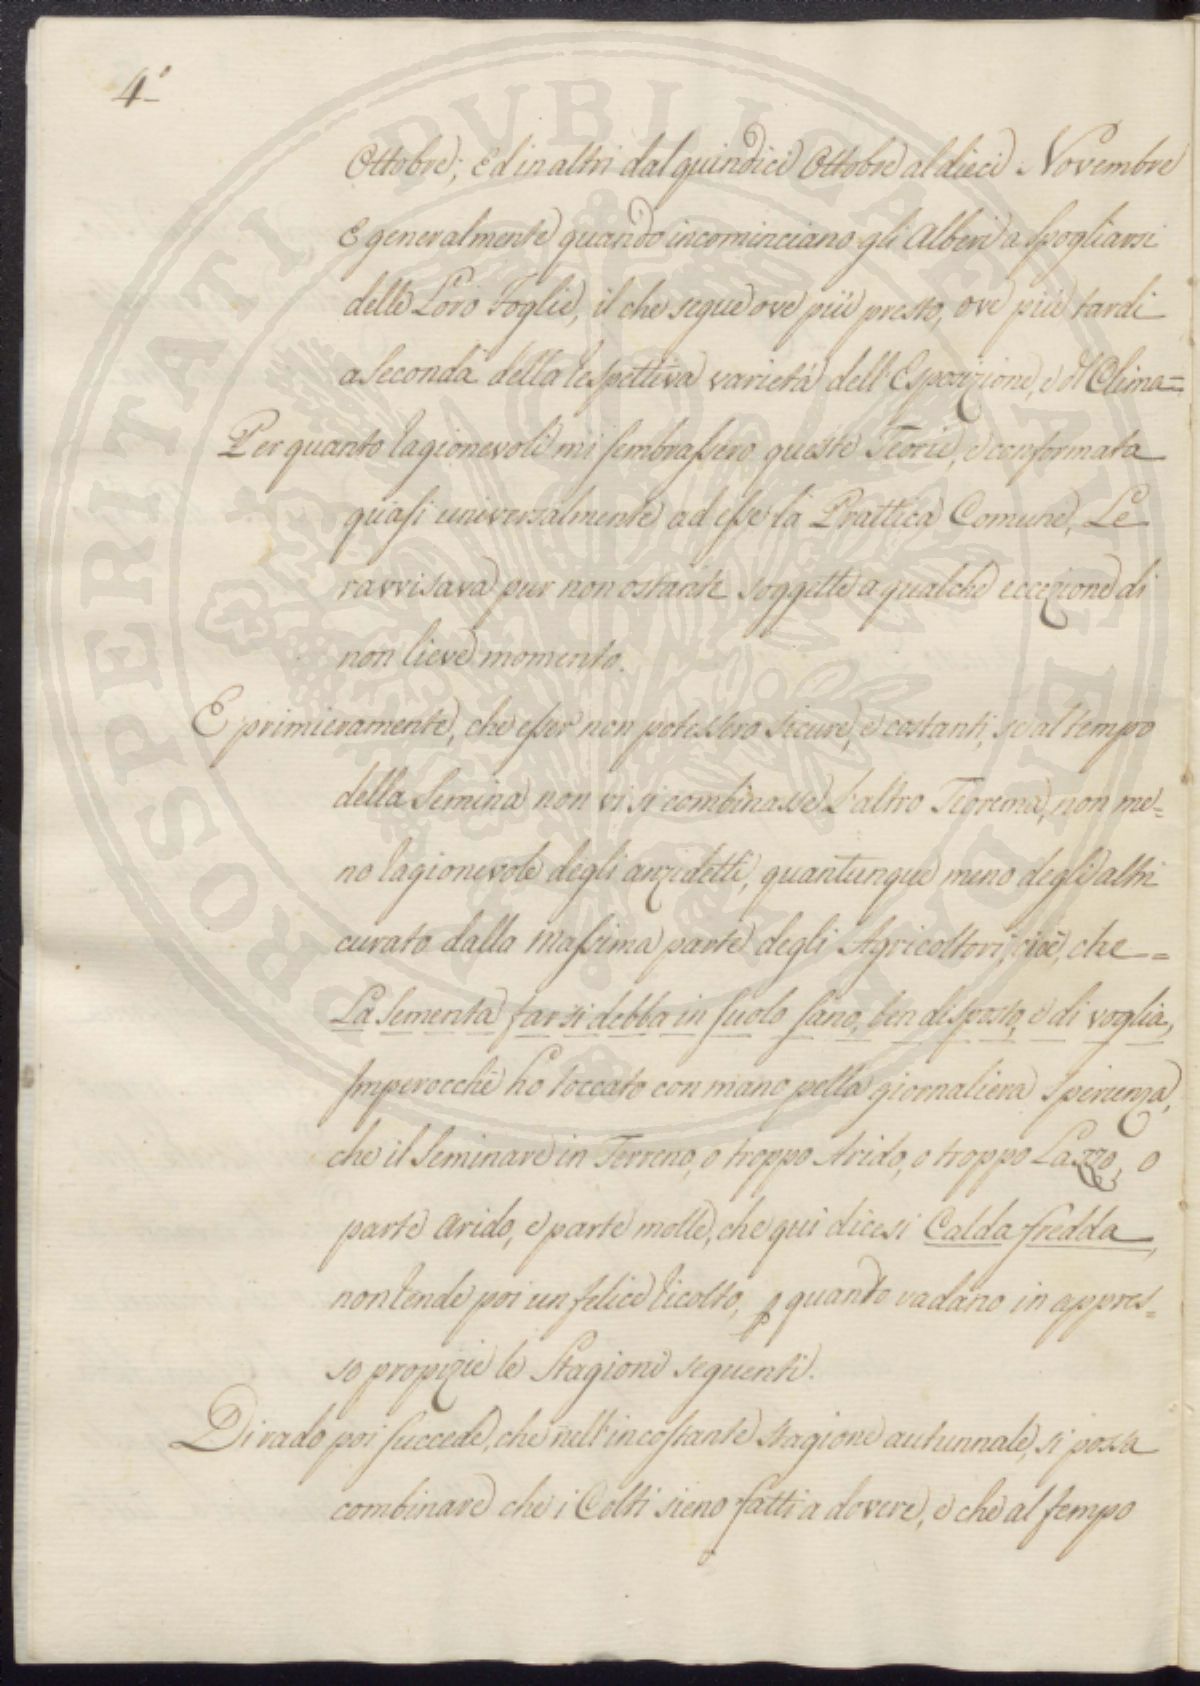 4°
Ottobre; Ed in altri dal quindici Ottobre al dieci Novembre
E generalmente quando incominciano gli Alberi a spogliarsi
delle Loro Foglie, il che segue ove più presto, ove più tardi
a Seconda della respettiva varietà dell'Esposizione, e del Clima=
Per quanto ragionevoli mi sembrassero queste Teorie, e conformata
quasi universalmente ad esse la Prattica Comune, Le
ravvisava pur non ostante soggette a qualche eccezione di
non lieve momento.
E primieramente, che esser non potessero sicure, e costanti, se al tempo
della Semina non vi si combinasse L'altro Teorema, non me=
no ragionevole degli anzidetti, quantunque meno degli altri
curato dalla massima parte degli Agricoltori, cioè, che =
La Sementa farsi debba in suolo sano, ben disposto, e di voglia,
Imperocchè ho toccato con mano nella giornaliera sperienza,
che il Seminare in Terreno, o troppo Arido, o troppo Lazzo, o
parte arido, e parte molle, che qui dicesi Calda fredda,
non rende poi un felice ricolto, p quanto vadano in appres=
so propizie le Stagioni seguenti.
Di rado poi succede, che nell'incostante stagione autunnale, si possa
combinare che i Colti sieno fatti a dovere, e che al tempo
PROSPERITATI PUBLICAE AUGENDAE